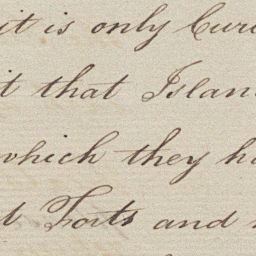 it is only Curi
t that Islan
which they ha
d Forts and